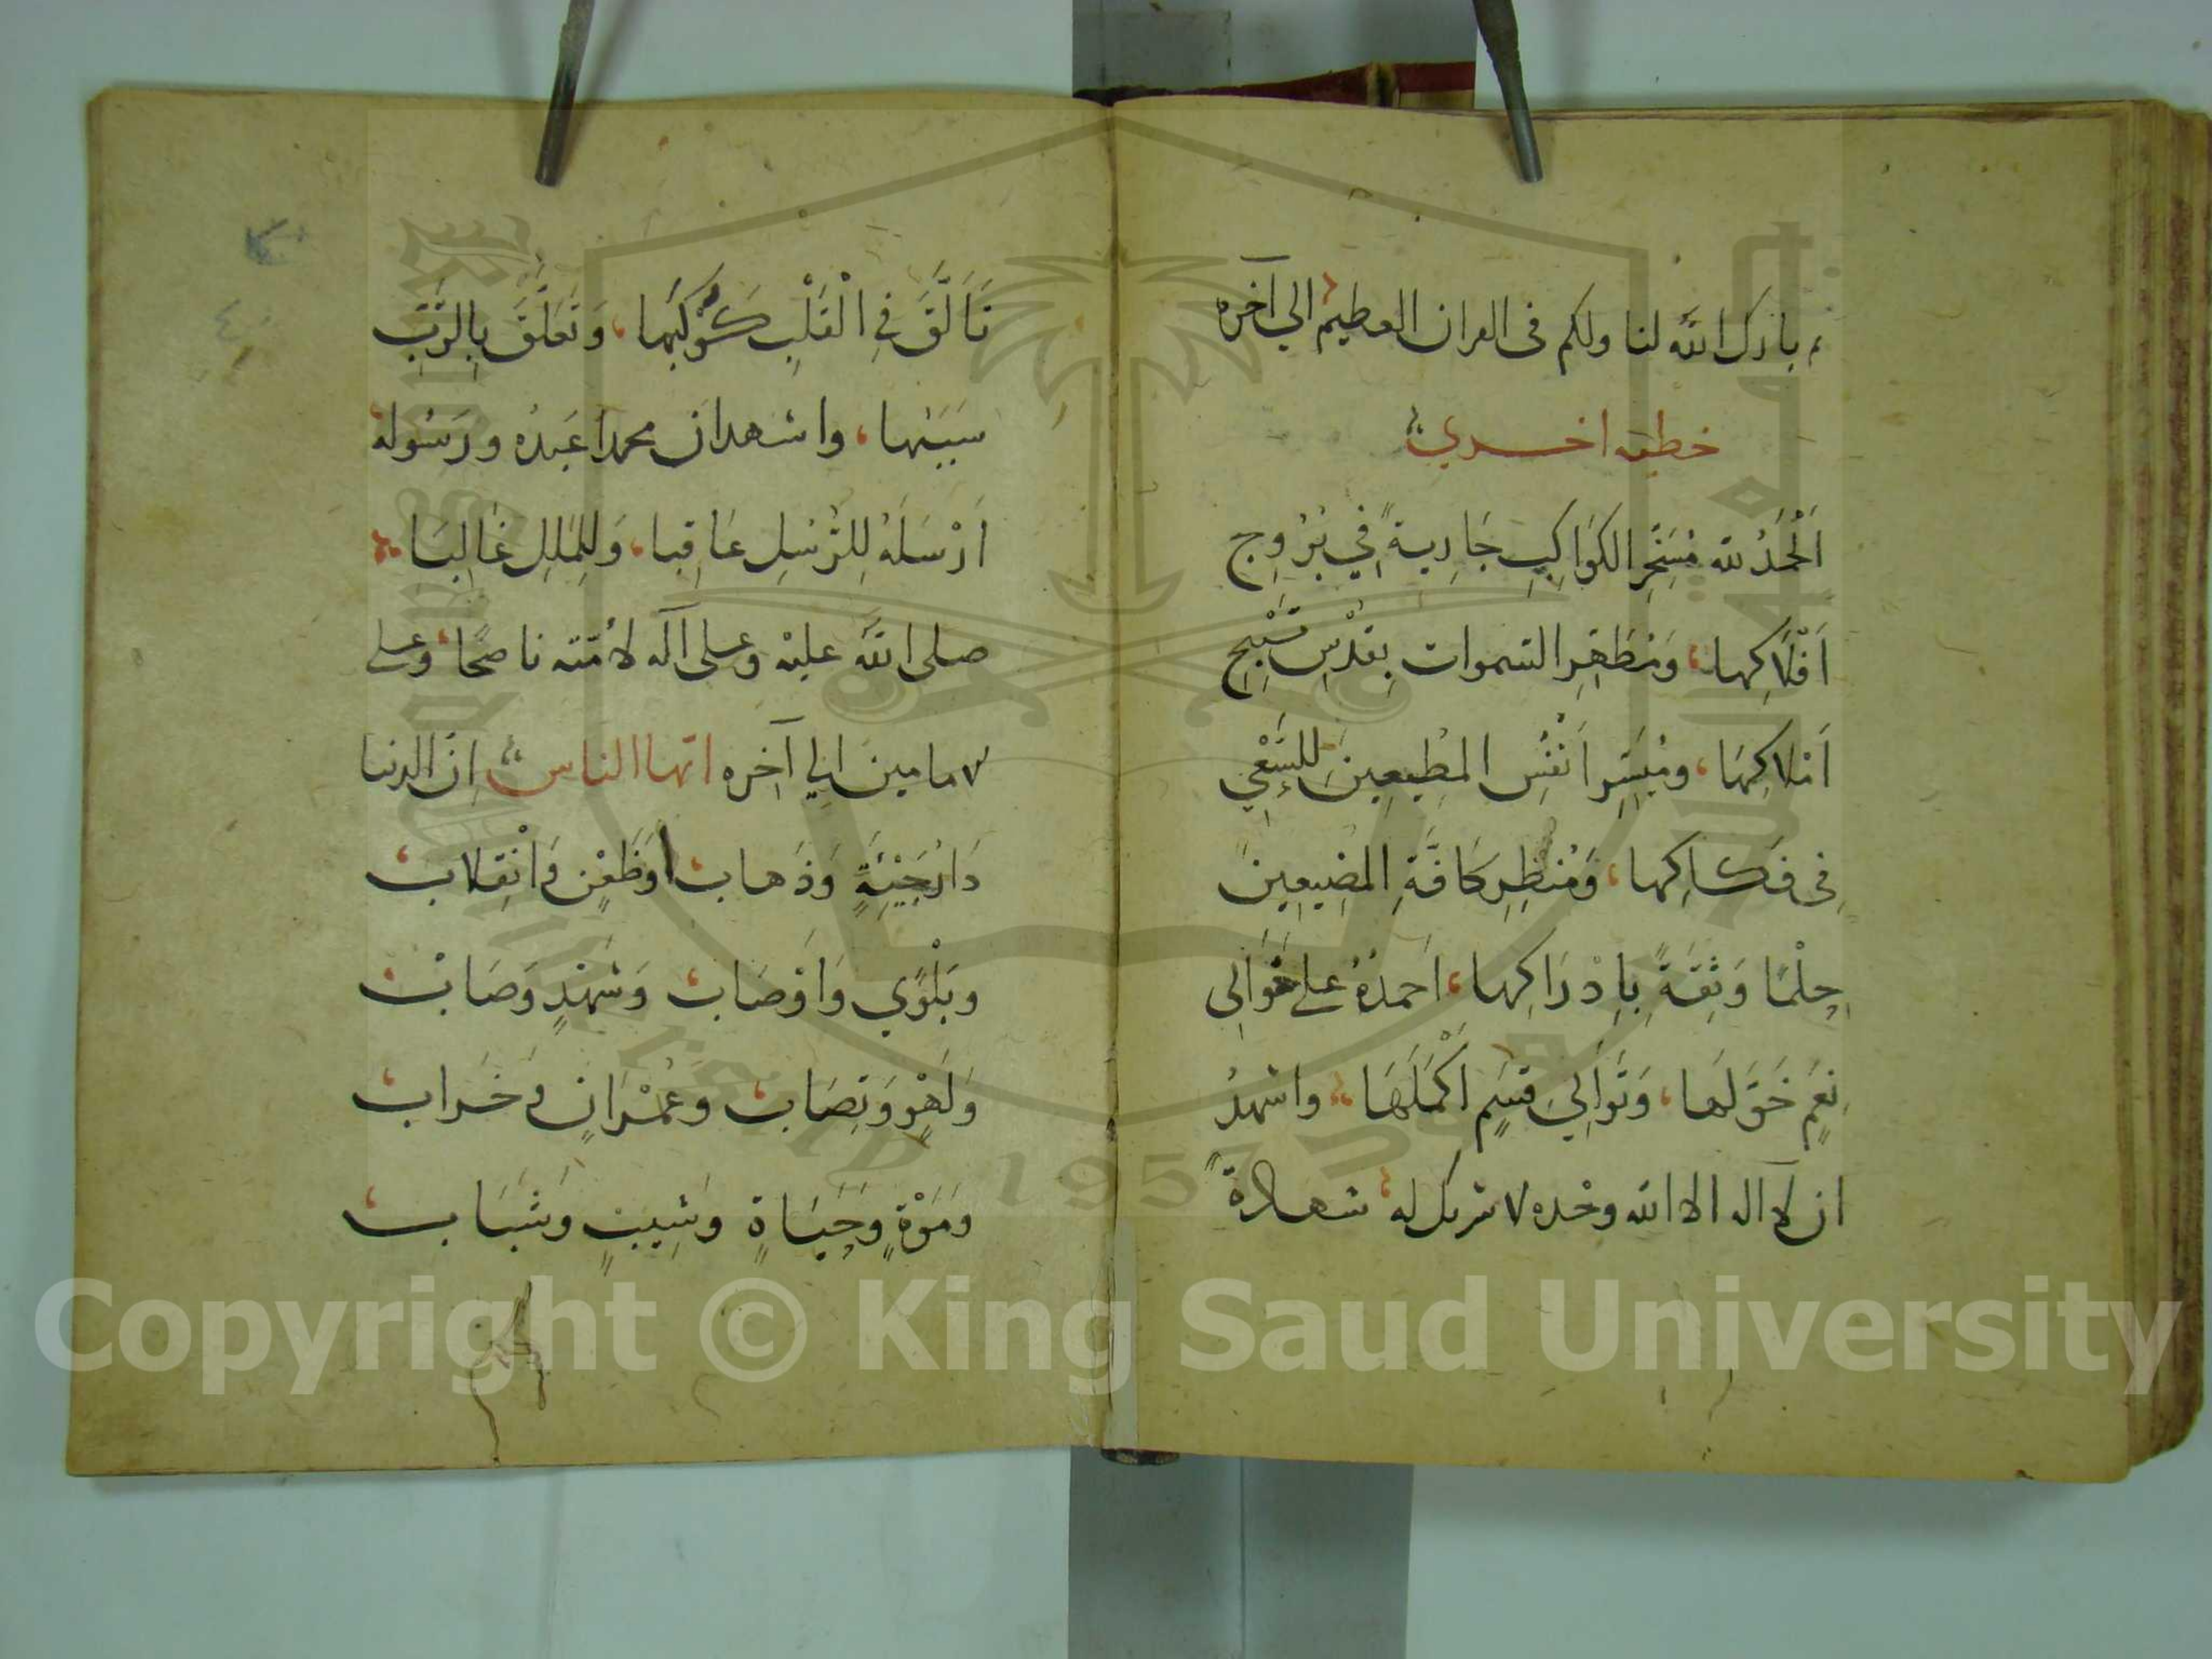 بارك الله لنا ولكم فى القران العظيم الي آخره
خطبه اخري
اَلْحَمَدُ لله مُسَخِّرِ الكوَاكِبِ جَارِيةً فِي بُرُوجِ
اَفْلَاكِهَا، وَمُطَهِّرِ السموات بِقُدْسِ تَسْبِيحِ
اَمْلاكِهَا، ومُيَسِّرِ اَنْفُسِ المُطِيعِينَ لِلسَّعْيِ
فِى فَكاكِهَا، وَمُنظِرِ كَافَّةِ المضِيعِينَ
حِلْمًا وَثِقَةً بِاِدْرَاكِهَا، اَحمدُهُ على
نِعَمٍ خَوَّلَهَا، وَتَوَالِي قِسَمٍ اَكْمَلَهَا، واشهدُ
ان لا اله الا الله وحْده لا شريك له شهادةً
تَاَلَّقَ فِي الْقَلْبِ كَوْكَبُهَا، وَتَعَلَّقَ بِالرَّبِّ
سَبَبُهَا، واشهد ان محمدا عَبدُه ورَسُوله
اَرْسَلَهُ لِلرُّسُلِ عَاقِبا، وَلِلْمِلَلِ غَالِبَا
صلى الله عليْه وعلى آله لاُمّته ناصحًا، وعلى
اِلي آخِره ايّها الناس اِنّ الدنيا
دَارُ جَيْئَةٍ وَذَهاب، وَظَعْنٍ وَانْقِلاب،
وبَلْوَي وَاَوْصَاب، وَشَهْدٍ وَصَاب،
وَلَهْوٍ وَنِصَاب، وعُمْرَانٍ وَخَرَاب،
وَمَوْةٍ وَحَيَاةٍ وشِيبٍ وَشَبَاب،
Copyright © King Saud University
1957